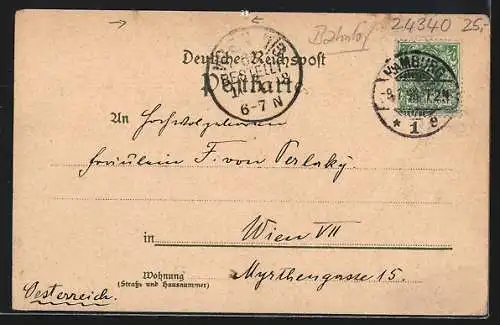 Bahnhof 24340 25,-
Deutsche Reichspost
Postkarte
BESTELLT
6-7 N
HAMBURG
* 1 e
An Hochwolgeboren
Fräulein F. von Perlaky
in Wien VII
Wohnung
(Straße und Hausnummer)
Myrthengasse 15.
Oesterreich.